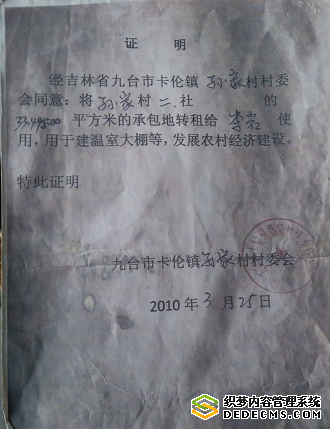 证 明
经吉林省九台市卡伦镇 孙家 村村委
会同意：将 孙家 村 二 社 的
33495.00 平方米的承包地转租给 李岩 使
用，用于建温室大棚等，发展农村经济建设。
特此证明
九台市卡伦镇 孙家 村村委会
2010 年 3 月 25 日
织梦内容管理系统
DEDECMS.COM